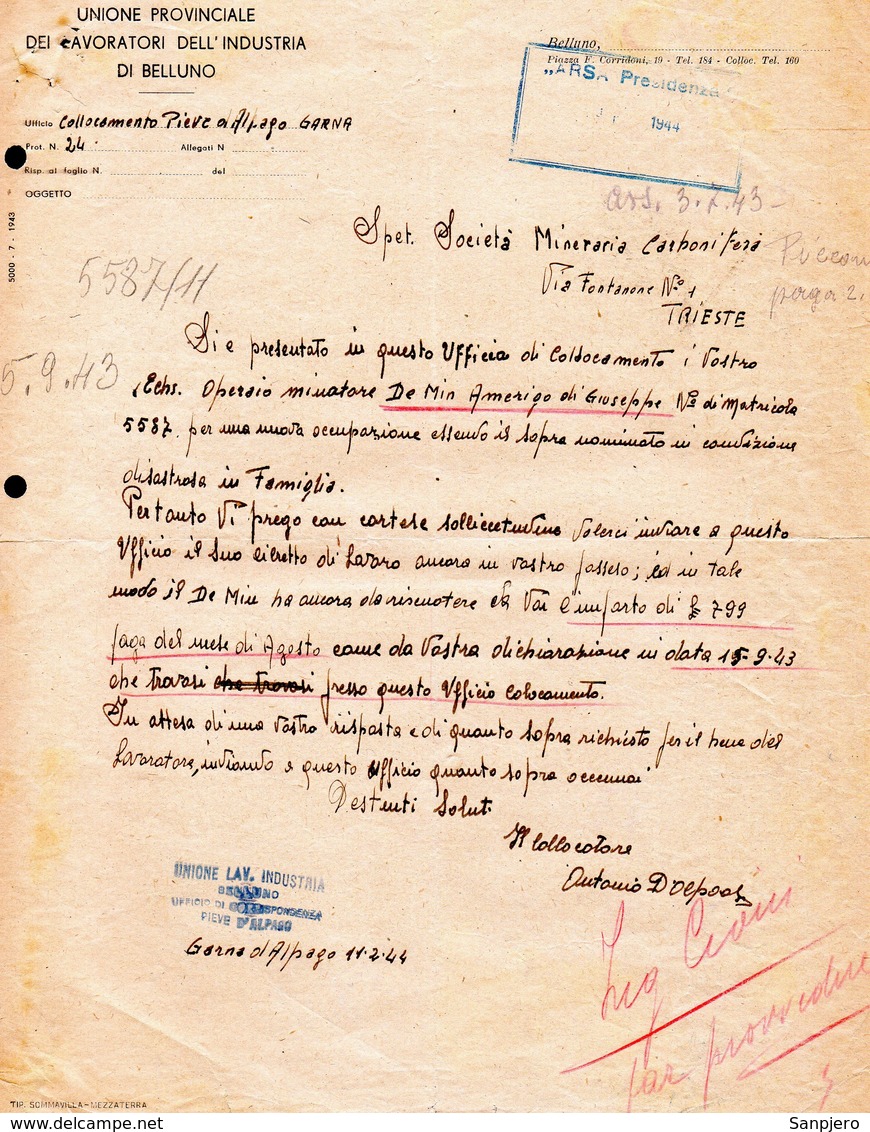 UNIONE PROVINCIALE
DEI LAVORATORI DELL'INDUSTRIA
DI BELLUNO
Belluno,
Piazza F. Corridoni, 19 - Tel. 184 - Colloc. Tel. 160
„ARSA Presidenza
1944
Ufficio Collocamento Pieve d'Alpago GARNA
Prot. N. 24 Allegati N
Risp. al foglio N. del
OGGETTO
5000 - 7 - 1943
ars. 3.2.43-
Spet. Società Mineraria Carbonifera
Via Fontanone N.º 1
TRIESTE
paga 2.
5587/11
5.9.43
Si e presentato in questo Ufficio di Collocamento i Vostro
Operaio minatore De Min Amerigo di Giuseppe Nº di Matricola
5587. per una nuova occupazione essendo il sopra nominato in condizione
disastrosa in Famiglia.
Pertanto Vi prego con cortese volerci inviare a questo
Ufficio il Suo libretto di Lavoro ancora in vostro possesso; ed in tale
modo il De Min ha ancora da riscuotere da Voi l'importo di £ 799
paga del mese di Agosto come da Vostra dichiarazione in data 15-9-43
che trovasi che trovasi presso questo Ufficio Colocamento.
In attesa di una Vostra risposta e di quanto sopra richiesto per il bene del
Lavoratore, inviando a questo Ufficio quanto sopra
Destinti Saluti
Il Collocatore
Antonio
UNIONE LAV. INDUSTRIA
BELLUNO
UFFICIO DI CORRISPONDENZA
PIEVE D'ALPAGO
Garna d'Alpago 11.2.44
Ing
per provvedere
TIP. SOMMAVILLA-MEZZATERRA
delcampe.net
Sanpjero